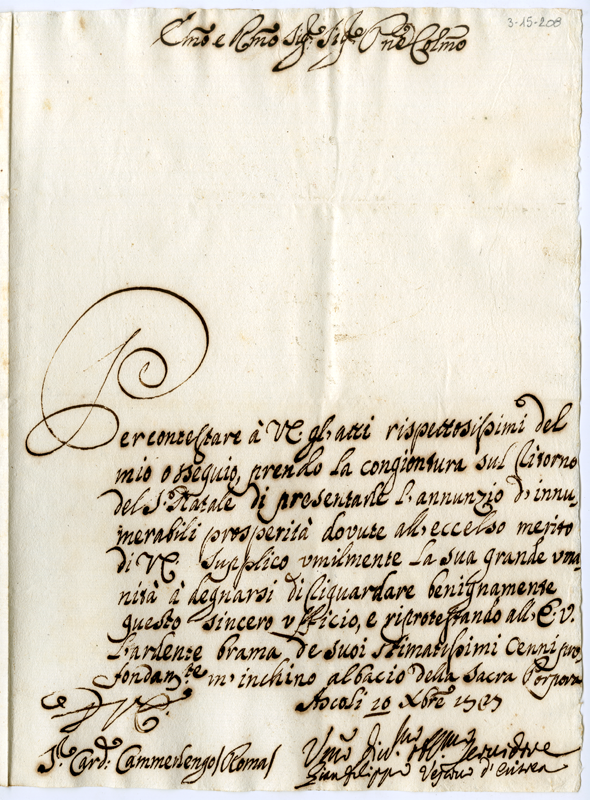 3-15-208
Emo e Rmo Sig.r Sig.r Pne Colmo
Per contestare à V.E. gl'atti rispettosissimi del
mio ossequio, prendo la congiontura sul ritorno
del S. Natale di presentarle l'annunzio d'innu
merabili prosperità dovute all'eccelso merito
di V.E. Supplico vmilmente la sua grande vma
nità à degnarsi di riguardare benignamente
questo sincero vfficio, e riprotestando all'E.V.
l'ardente brama de suoi stimatissimi cenni pro
fondam.te m'inchino al bacio della Sacra Porpora
Di V.E.
Ascoli 20 Xbre
S.r Card: Cammerlengo / Roma /
Vmo Servidore
Gian Filippo Vescovo d'